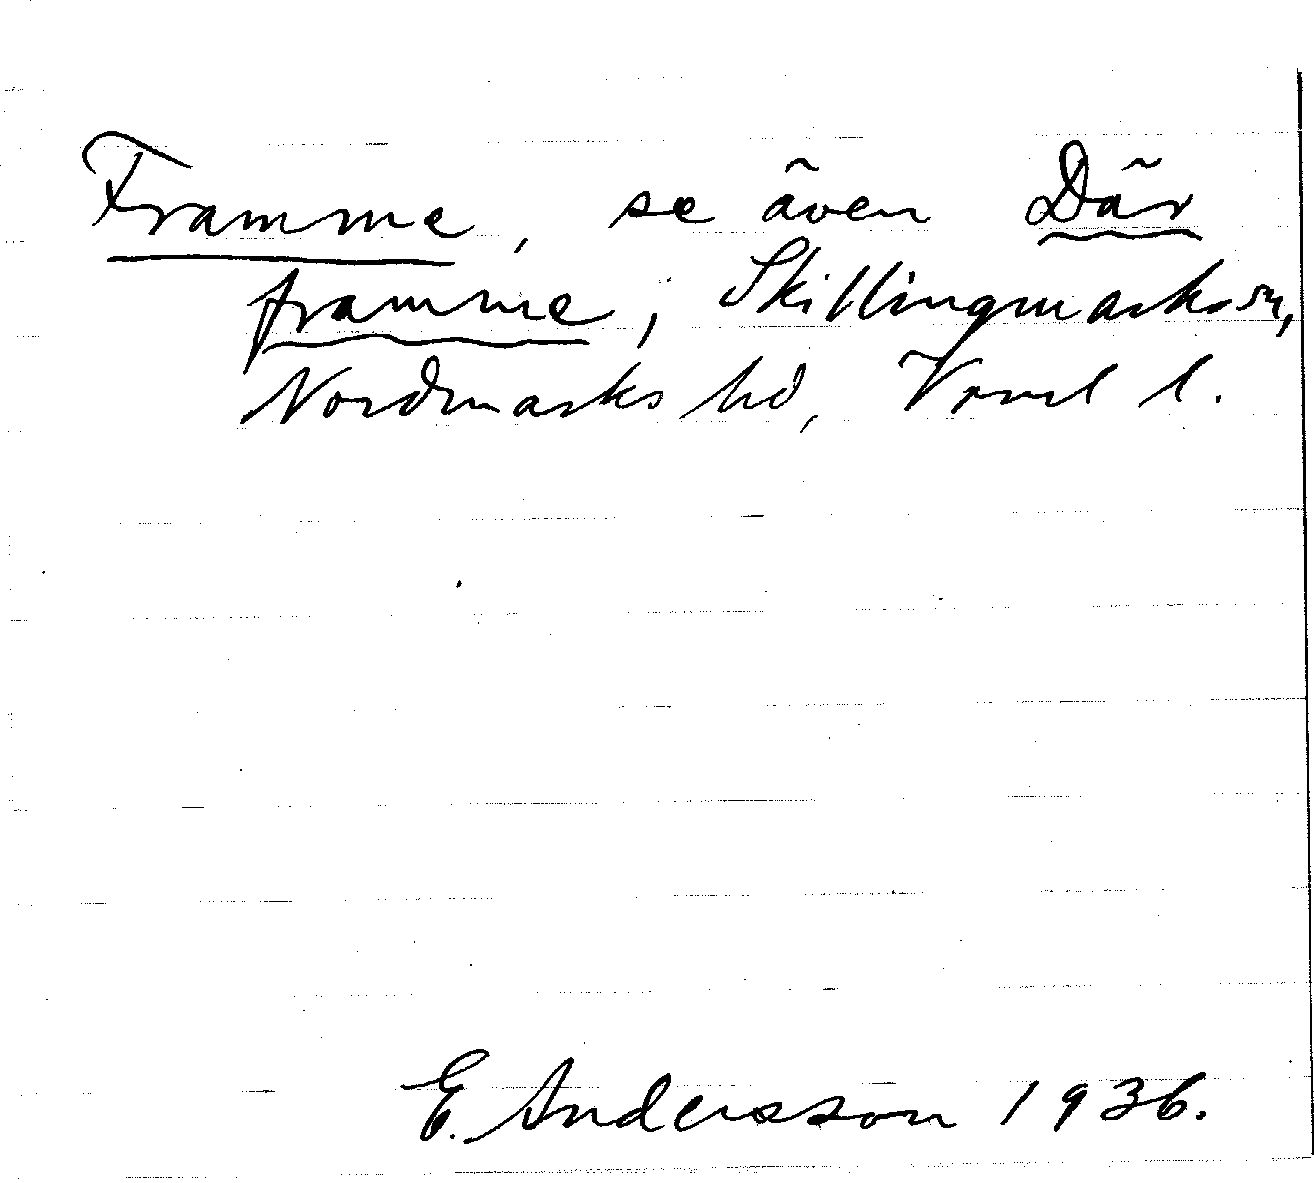 Framme, se även Där
framme, Skillingmarks sn,
Nordmarks hd, Vrml l.
E. Andersson 1936.